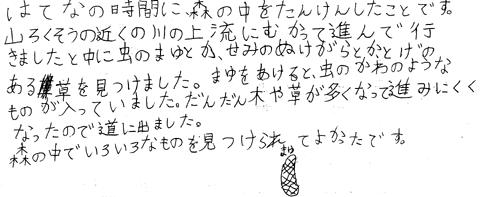 はてなの時間に、森の中をたんけんしたことです。
山ろくそうの近くの川の上流にむかって進んで行
きましたと中に虫のまゆとか、せみのぬけがらとかとげの
ある草を見つけました。まゆをあけると、虫のかわのような
ものが入っていました。だんだん木や草が多くなって進みにくく
なったので道に出ました。
森の中でいろいろなものを見つけられてよかったです。
まゆ